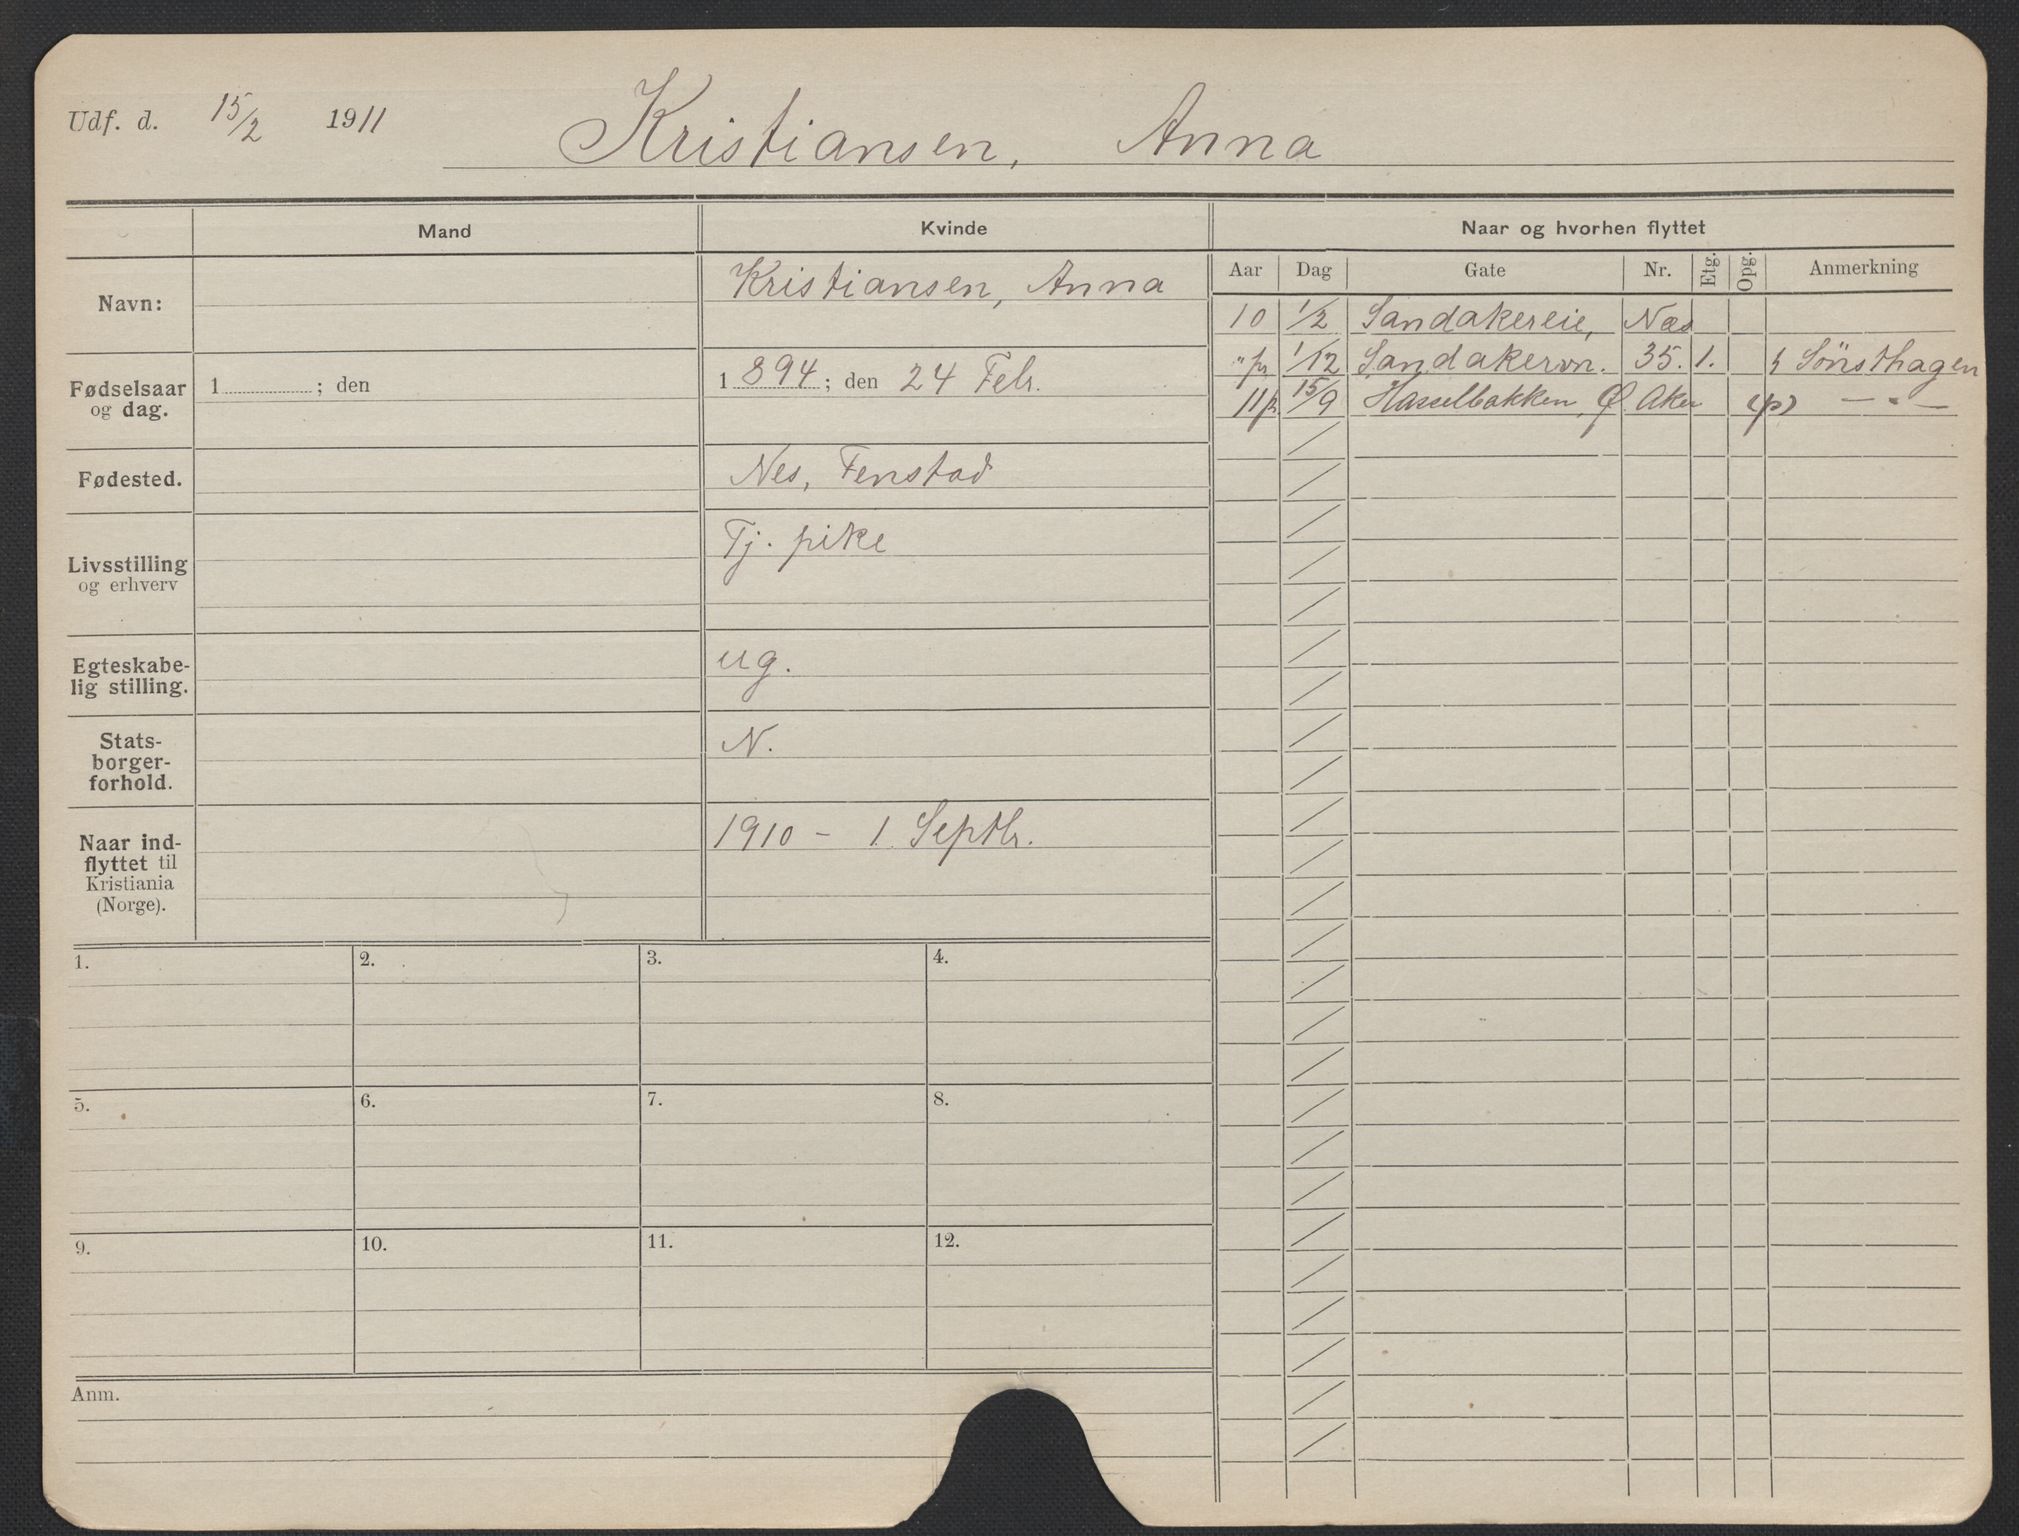 Udf. d. 15/2 1911 Kristiansen, Anna
Mand Kvinde Naar og hvorhen flyttet
Navn: Kristiansen, Anna
Aar Dag Gate Nr. Etg. Opg. Anmerkning
10 1/2 Sandakereie, Næs
" pr 1/12 Sandakervn. 35. 1. Sönsthagen
11 p 15/9 Hasselbakken, Ø. Aker (p) — " —
Fødselsaar og dag. 1 ; den 1894; den 24 Febr.
Fødested. Nes, Fenstad
Livsstilling og erhverv Tj. pike
Egteskabe-
lig stilling. ug.
Stats-
borger-
forhold. N.
Naar ind-
flyttet til
Kristiania
(Norge). 1910 - 1. Septbr.
1. 2. 3. 4.
5. 6. 7. 8.
9. 10. 11. 12.
Anm.